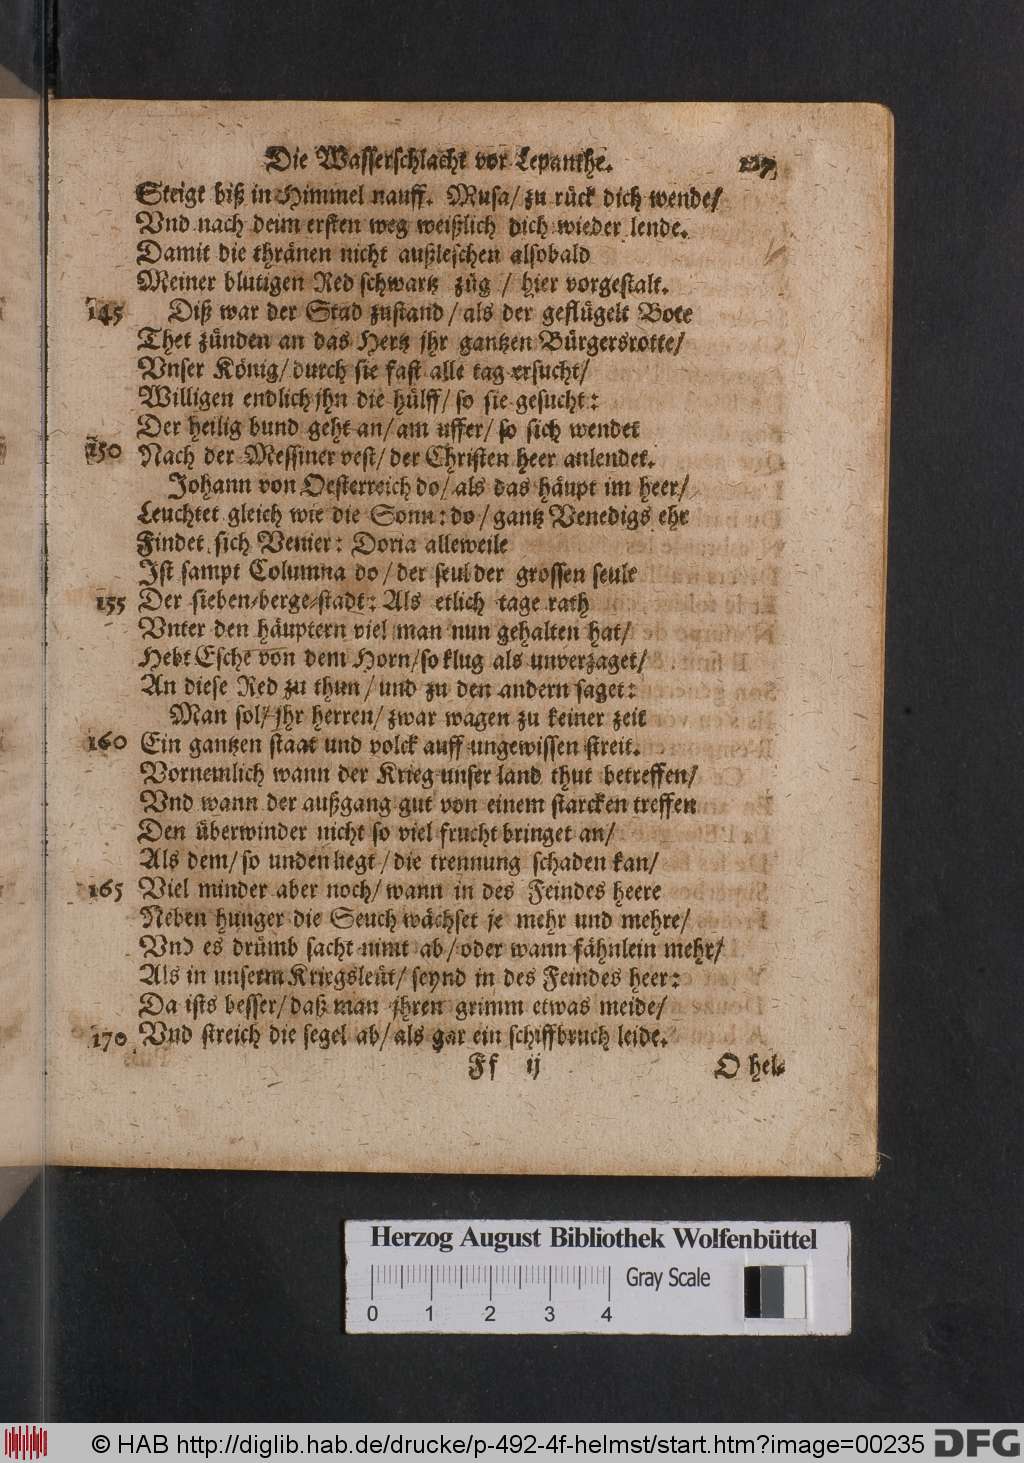 Die Wasserschlacht vor Lepanthe.
Steigt biß in Himmel nauff. Musa/ zu rück dich wende/
Vnd nach deim ersten weg weißlich dich wieder lende.
Damit die thränen nicht außleschen alsobald
Meiner blutigen Red schwartz züg / hier vorgestalt.
145 Diß war der Stad zustand/ als der geflügelt Bote
Thet zünden an das Hertz jhr gantzen Bürgersrotte/
Vnser König/ durch sie fast alle tag ersucht/
Willigen endlich jhn die hülff/ so sie gesucht:
Der heilig bund geht an/ am uffer/ so sich wendet
150 Nach der Messiner vest/ der Christen heer anlendet.
Johann von Oesterreich do/ als das häupt im heer/
Leuchtet gleich wie die Sonn: do/ gantz Venedigs ehr
Findet sich Venier: Doria alleweile
Ist sampt Columna do/ der seul der grossen seule
155 Der sieben-berge-stadt: Als etlich tage rath
Vnter den häuptern viel man nun gehalten hat/
Hebt Esche von dem Horn/ so klug als unverzaget/
An diese Red zu thun/ und zu den andern saget:
Man sol/ jhr herren/ zwar wagen zu keiner zeit
160 Ein gantzen staat und volck auff ungewissen streit.
Vornemlich wann der Krieg unser land thut betreffen/
Vnd wann der außgang gut von einem starcken treffen
Den überwinder nicht so viel frucht bringet an/
Als dem/ so unden liegt/ die trennung schaden kan/
165 Viel minder aber noch/ wann in des Feindes heere
Neben hunger die Seuch wächset je mehr und mehre/
Vnd es drümb sacht nimt ab/ oder wann fähnlein mehr/
Als in unserm Kriegsleüt/ seynd in des Feindes heer:
Da ists besser/ daß man jhren grimm etwas meide/
170 Vnd streich die segel ab/ als gar ein schiffbruch leide.
Ff ij O hel-
Herzog August Bibliothek Wolfenbüttel
Gray Scale
0 1 2 3 4
© HAB http://diglib.hab.de/drucke/p-492-4f-helmst/start.htm?image=00235 DFG